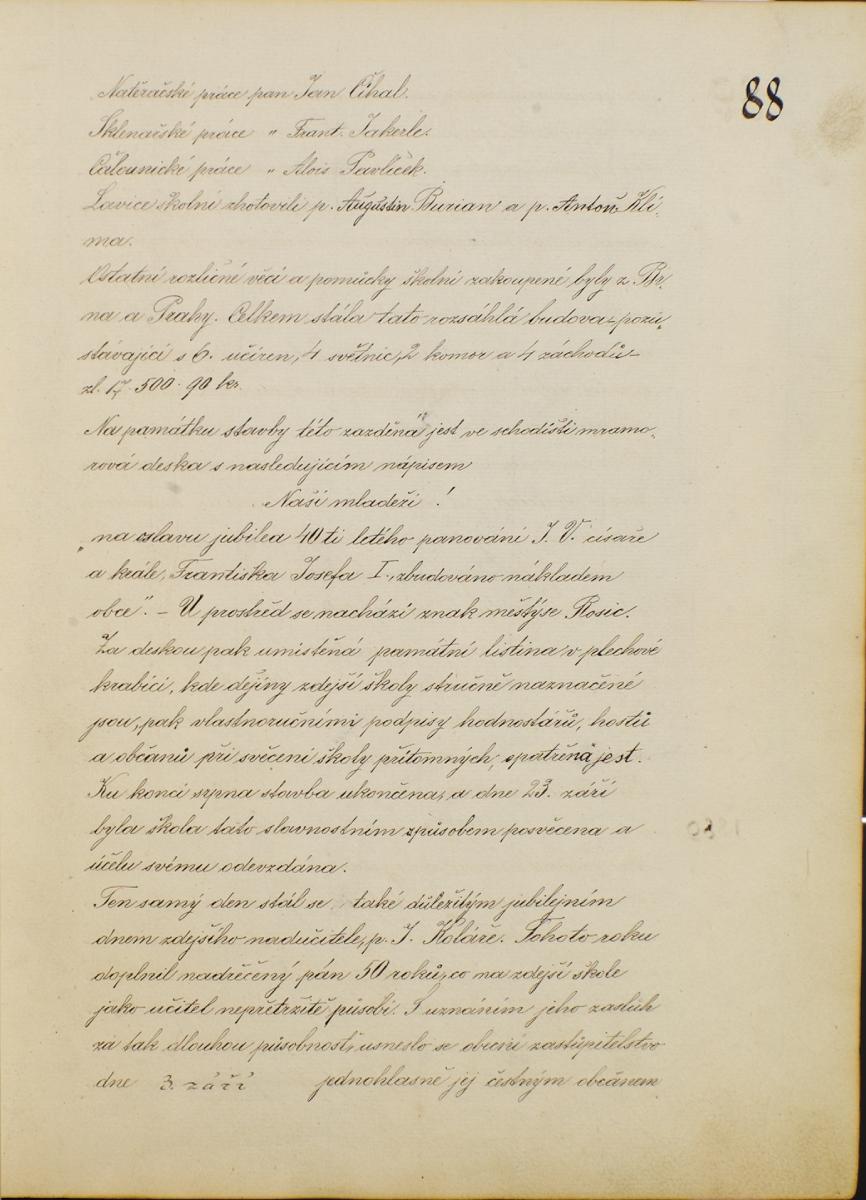 88
Natěračské práce pan Jan Číhal.
Sklenačské práce „ Frant. Jakerle.
Čalounické práce „ Alois Pavlíček.
Lavice školní zhotovili p. Augustin Burian a p. Anton Kli-
ma.
Ostatní rozličné věci a pomůcky školní zakoupené byly z Br-
na a Prahy. Celkem stála tato rozsáhlá budova – pozů„
stávající s 6. učíren, 4 světnic, 2 komor a 4 záchodů –
zl. 17. 500. 90 kr.
Na památku stavby této zazděná jest ve schodišti mramo„
rová deska s nasledujícím nápisem
Naší mladeži !
„na oslavu jubilea 40ti letého panování J. V. císaře
a krále, Františka Josefa I., zbudováno nákladem
obce“. – U prostřed se nachází znak městýse Rosic.
Za deskou pak umistěná památní listina v plechové
krabici, kde dějiny zdejší školy stručně naznačené
jsou, pak vlastnoručními podpisy hodnostářů, hostů
a občanů při svěcení školy přítomných, opatřená jest.
Ku konci srpna stavba ukončena, a dne 23. září
byla škola tato slavnostním způsobem posvěcena a
účelu svému odevzdána.
Ten samý den stál se také důležitým jubilejním
dnem zdejšího nadučitele, p. J. Koláře. Tohoto roku
doplnil nadřečený pán 50 roků, co na zdejší škole
jako učitel nepřetržitě působí. S uznáním jeho zasluh
za tak dlouhou působnost, usneslo se obecní zastupitelstvo
dne 3. září jednohlasně jej čestným občanem